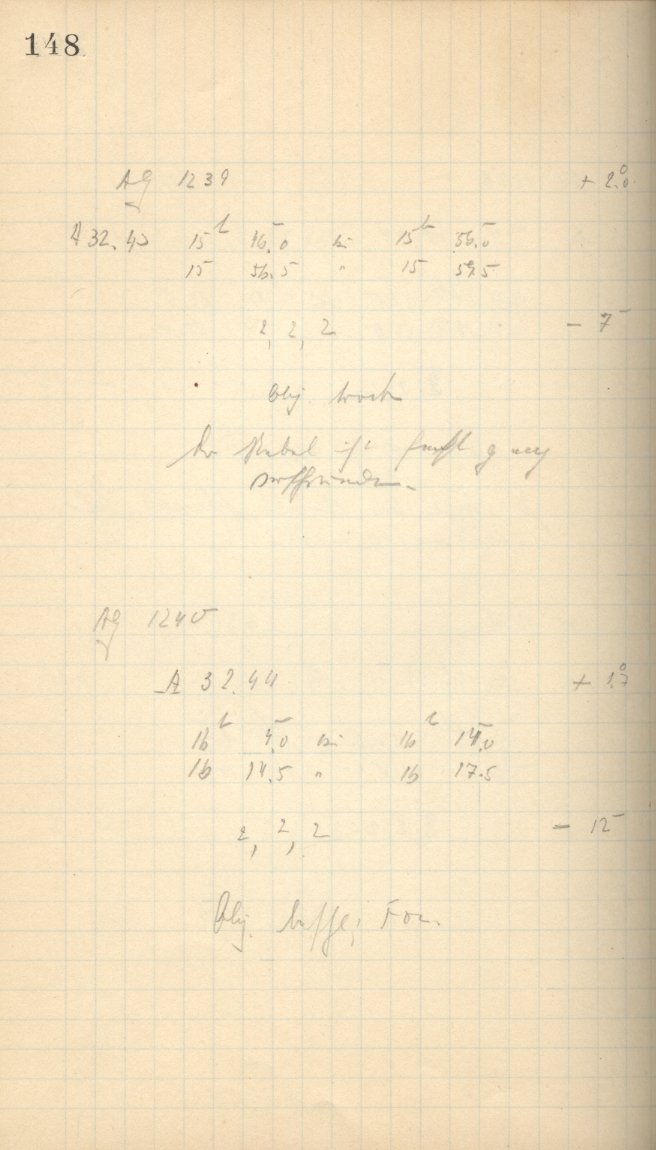 148
AG 1239 + 2.0°
A 32.43 15h 46.0m bis 15h 56.0m
15 56.5 " 15 59.5
2, 2, 2 - 7
Obj. trock
Der Nebel ist fast ganz
verschwunden.
AG 1240
A 32.44 + 1.7°
16h 4.0m bis 16h 14.0m
16 14.5 " 16 17.5
2, 2, 2 - 12
Obj. Fon.